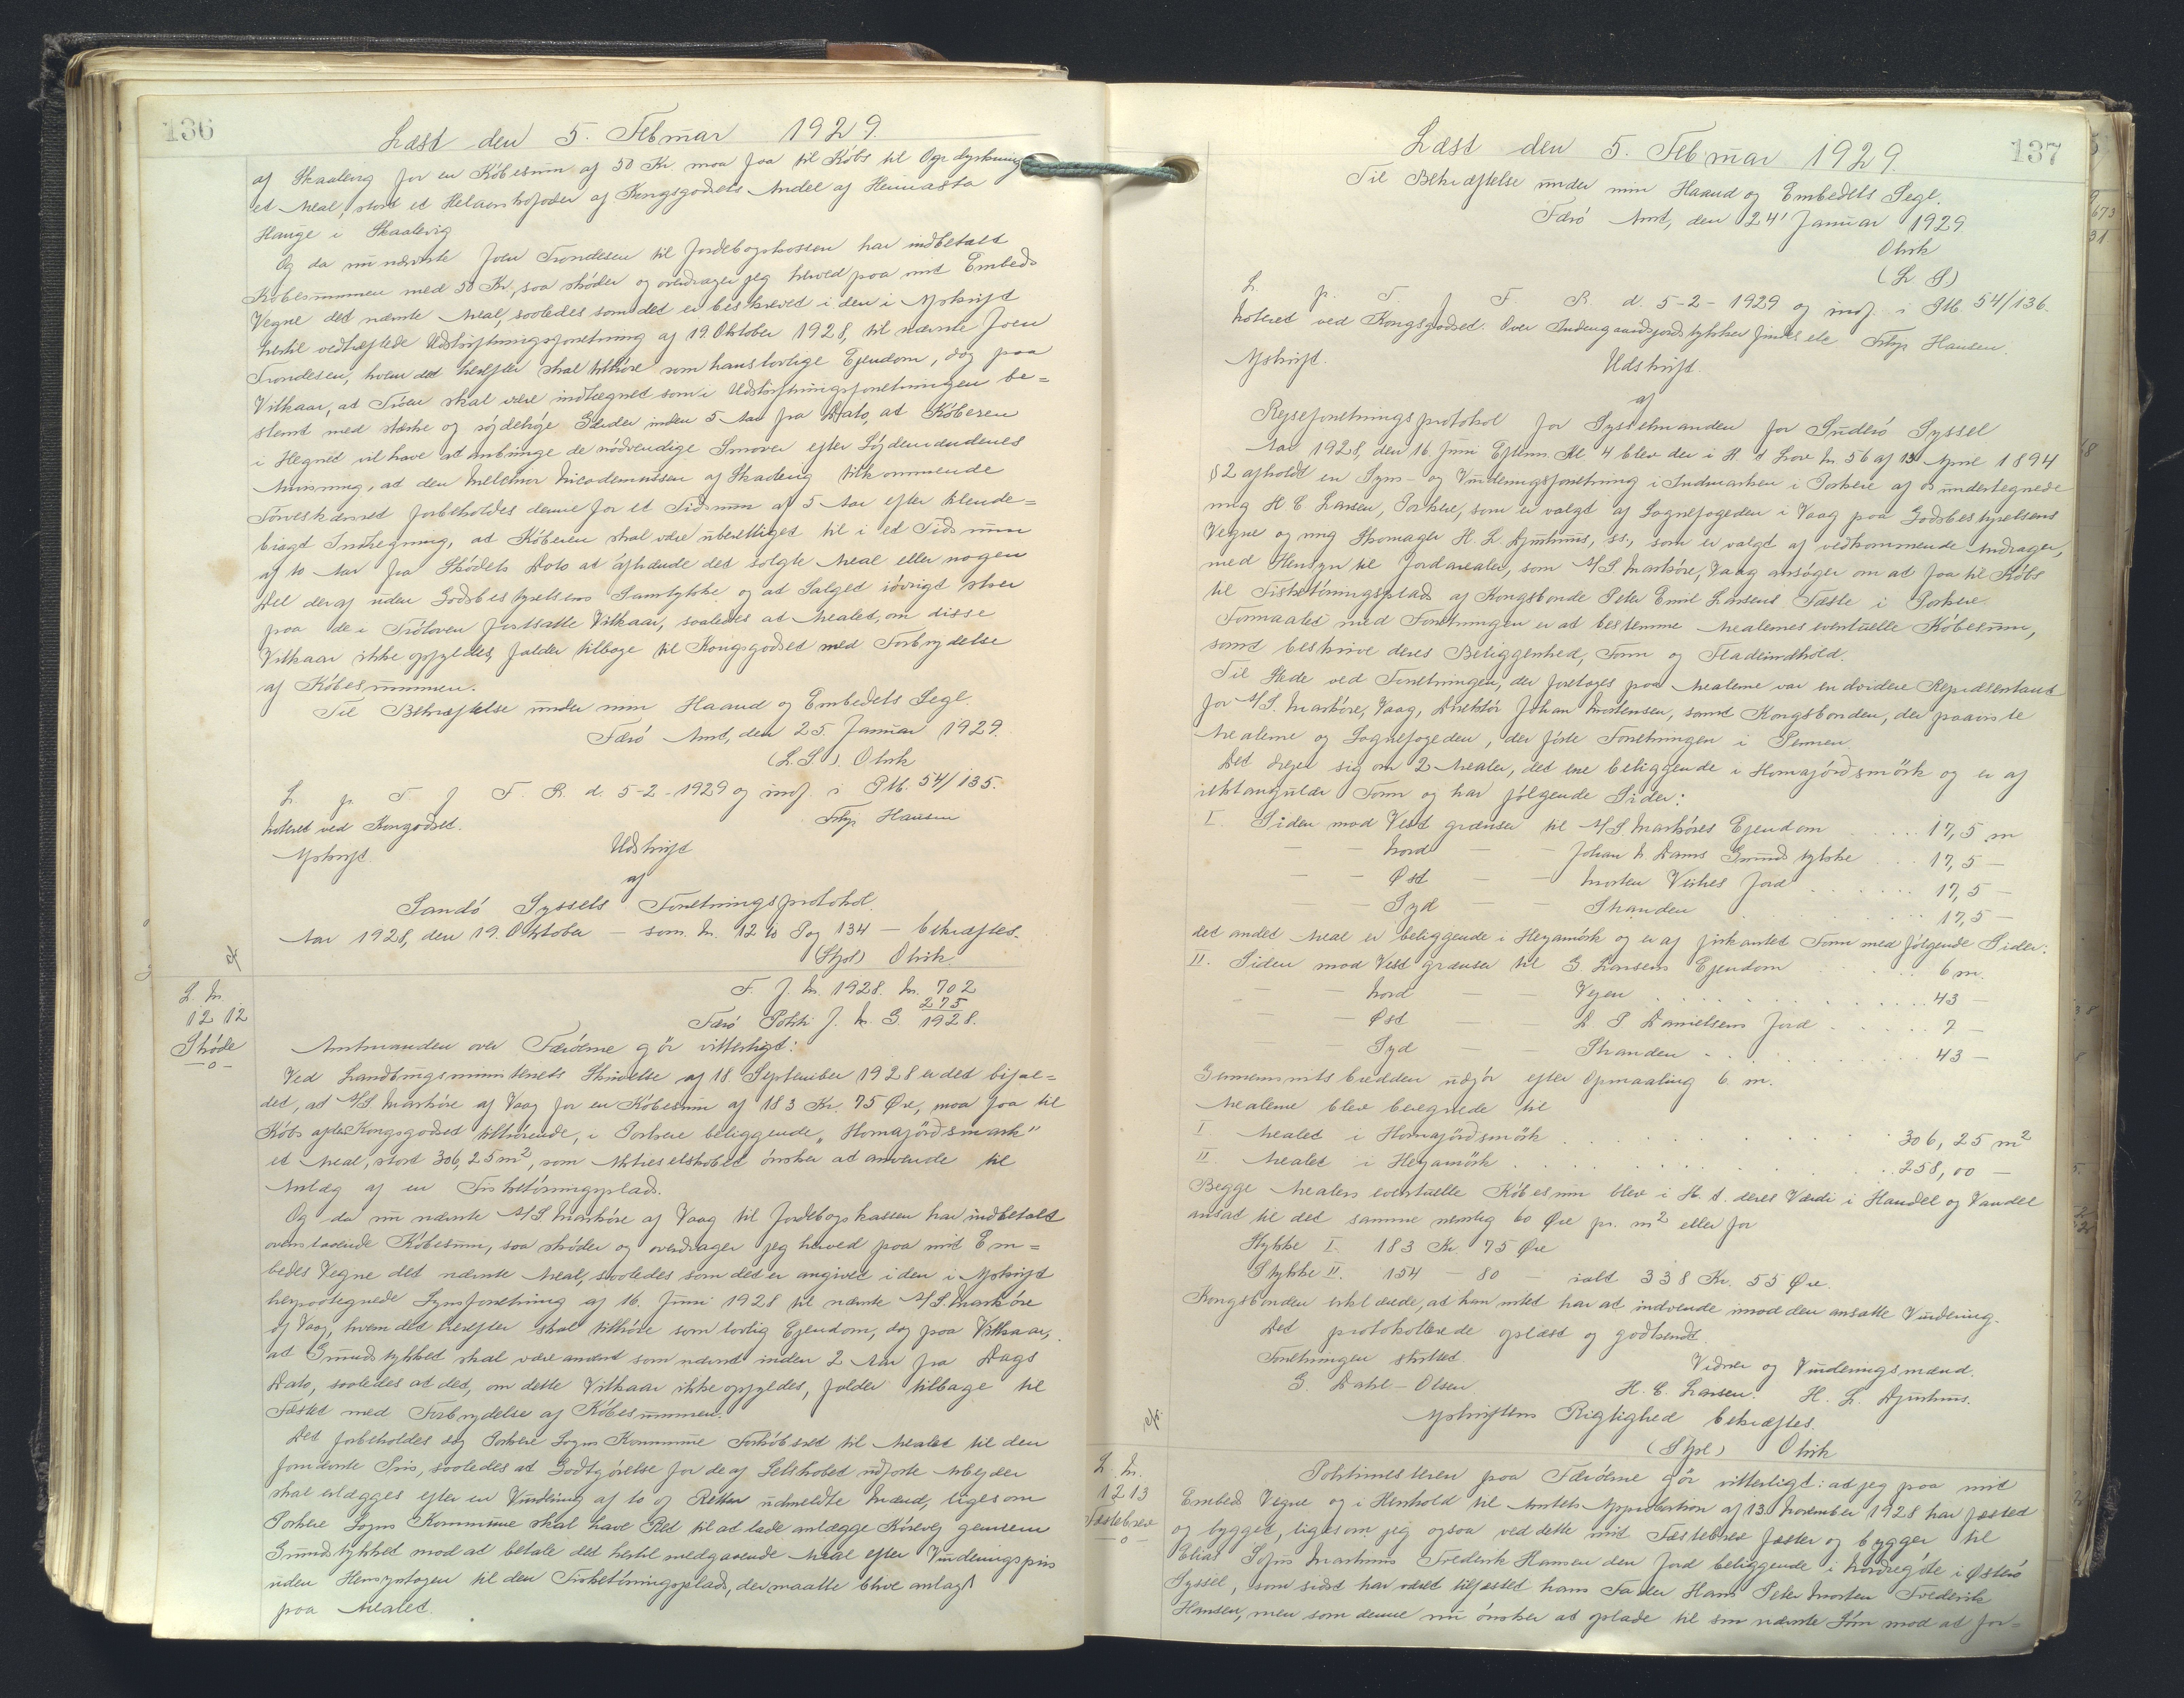 136
Læst den 5. Februar 1929.
af Skaalevig for en Købesum af 50 Kr. maa faa til Købs til Opdyrkning
et Areal, stort et Helaarskofoder af Kongsgodsets Andel af Heimasta
Hauge i Skaalevig
Og da nu nævnte Joen Trondesen til Jordebogskassen har indbetalt
Købesummen med 50 Kr., saa skøder og overdrager jeg herved paa mit Embeds
Vegne det nævnte Areal, saaledes som det er beskrevet i den i Afskrift
hertil vedhæftede Udskiftningsforretning af 19 Oktober 1928, til nævnte Joen
Trondesen, hvem det herefter skal tilhøre som hans lovlige Ejendom, dog paa
Vilkaar, at Trøen skal være indhegnet som i Udskiftningsforretningen be=
stemt med stærke og søjdelige Gærder inden 5 Aar fra Dato, at Køberen
i Hegnet vil have at anbringe de nødvendige Smover efter Løgdemændenes
Anvisning, at den Melchior Nicodemussen af Skaalevig tilkommende
Tørveskæred forbeholdes denne for et Tidsrum af 5 Aar efter tilende=
bragt Indhegning, at Køberen skal være uberettiget til i et Tidsrum
af 10 Aar fra Skødets Dato at afhænde det solgte Areal eller nogen
Del deraf uden Godsbestyrelsens Samtykke og at Salget iøvrigt sker
paa de i Trøloven fastsatte Vilkaar, saaledes at Arealet, om disse
Vilkaar ikke opfyldes, falder tilbage til Kongsgodset med Fortrydelse
af Købesummen.
Til Bekræftelse under min Haand og Embedets Segl.
Færø Amt, den 25. Januar 1929.
(L.S.). Olrik
L. p. T. f F. R. d. 5-2-1929 og indf. i Ptk. 54/135.
Noteret ved Kongodset. Frkp Hansen
Afskrift. Udskrift
af
Sandø Syssels Forretningsprotokol.
Aar 1928, den 19. Oktober – som Nr. 1210 Pag 134 – bekræftes.
(Stpl) Olrik
F. J. Nr. 1928. Nr. 702
Færø Politi J. Nr. G. 275/1928.
L. Nr.
1212
Skøde
—o—
Amtmanden over Færøerne gør vitterligt:
Ved Landbrugsministeriets Skrivelse af 18. September 1928 er det bifal=
det, at A/S. Markøre af Vaag for en Købesum af 183 Kr. 75 Øre, maa faa til
Købs af det Kongsgodset tilhørende, i Porkere beliggende „Homajørdsmark"
et Areal, stort 306,25 m², som Aktieselskabet ønsker at anvende til
Anlæg af en Fisketørringsplads.
Og da nu nævnte A/S. Markøre af Vaag til Jordebogskassen har indbetalt
ovenstaaende Købesum, saa skøder og overdrager jeg herved paa mit Em=
bedes Vegne det nævnte Areal, saaledes som det er angivet i den i Afskrift
herpaategnede Synsforretning af 16. Juni 1928 til nævnte A/S. Markøre
af Vaag, hvem det herefter skal tilhøre som lovlig Ejendom, dog paa Vilkaar,
at Grundstykket skal være anvendt som nævnt inden 2 Aar fra Dags
Dato, saaledes at det, om dette Vilkaar ikke opfyldes, falder tilbage til
Fæstet med Fortrydelse af Købesummen.
Det forbeholdes dog Porkere Sogns Kommune Forkøbsret til Arealet til den
fornævnte Pris, saaledes at Godtgørelse for de af Selskabet udførte Arbejder
skal erlægges efter en Vurdering af to af Retten udmeldte Mænd, ligesom
Porkere Sogns Kommune skal have Ret til at lade anlægge Kørevej gennem
Grundstykket mod at betale det hertil medgaaende Areal efter Vurderingspris
uden Hensyntagen til den Fisketørringsplads, der maatte blive anlagt
paa Arealet.
137
Læst den 5. Februar 1929.
Til Bekræftelse under min Haand og Embedets Segl.
Færø Amt, den 24' Januar 1929
Olrik
(L S)
L. p. T. f F. R. d. 5-2-1929 og indf. i Ptk. 54/136.
Noteret ved Kongsgodset. Over Indengaardsjordstykker findes ete Frkp Hansen
Afskrift. Udskrift.
af
Rejseforretningsprotokol for Sysselmanden for Suderø Syssel
Aar 1928, den 16. Juni Efterm. Kl 4 blev der i H. t Lov Nr. 56 af 13 April 1894
§2 afholdt en Syns- og Vurderingsforretning i Indmarken i Porkere af os undertegnede
mig H E Larsen, Porkere, som er valgt af Sognefogeden i Vaag paa Godsbestyrelsens
Vegne og mig Skomager H. L Djurhuus, ss., som er valgt af vedkommende Andrager,
med Hensyn til Jordarealer, som A/S Markøre, Vaag ansøger om at faa til Købs
til Fisketørringsplads af Kongsbonde Peter Emil Larsens Fæste i Porkere.
Formaalet med Forretningen er at bestemme Arealernes eventuelle Købesum,
samt beskrive deres Beliggenhed, Form og Fladeindhold.
Til Stede ved Forretningen, der foretages paa Arealerne var endvidere Repræsentant
for A/S. Markøre, Vaag, Direktør Johan Mortensen, samt Kongsbonden, der paaviste
Arealerne og Sognefogeden, der førte Forretningen i Pennen.
Det drejer sig om 2 Arealer, det ene beliggende i Homajørdsmörk og er af
rektangulær Form og har følgende Sider:
I. Siden mod Vest grænser til A/S Markøres Ejendom . . . . 17,5 m
— — Nord — — Johan N. Dams Grundstykke . . . 17,5 —
— — Øst — — Morten Virkes Jord . . . . . . 17,5 —
— — Syd — — Stranden . . . . . . 17,5 —
det andet Areal er beliggende i Heyamörk og er af firkantet Form med følgende Sider:
II. Siden mod Vest grænser til G. Larsens Ejendom . . . . 6 m.
— — Nord — — Vejen . . . . . . . . 43 —
— — Øst — — D P. Danielsens Jord . . . . . 7 —
— Syd — — Stranden . . . . . . . 43 —
Gennemsnitsbredden udgør efter Opmaaling 6. m.
Arealerne blev beregnede til
I Arealet i Homajørdsmörk . . . . . . . . 306,25 m²
II. Arealet i Heyamörk . . . . . . . . 258,00 —
Begge Arealers eventuelle Købesum blev i H. t. deres Værdi i Handel og Vandel
ansat til det samme nemlig 60 Øre pr. m² eller for
Stykke I. 183 Kr. 75 Øre
Stykke II. 154 — 80 — ialt 338 Kr. 55 Øre.
Kongsbonden erklærede, at han intet har at indvende imod den ansatte Vurdering.
Det protokollerede oplæst og godkendt.
Forretningen sluttet
Vidner og Vurderingsmænd.
G. Dahl-Olsen H. E. Larsen. H. L. Djurhuus.
Afskriftens Rigtighed bekræftes.
(Stpl) Olrik
L. Nr.
1213
Fæstebrev
—o—
Politimesteren paa Færøerne gør vitterligt: at jeg paa mit
Embeds Vegne og i Henhold til Amtets Approbation af 13. November 1928 har fæstet
og bygget, ligesom jeg ogsaa ved dette mit Fæstebrev fæster og bygger til
Elias Sofus Markinus Frederik Hansen den Jord beliggende i Nordregøte i Østerø
Syssel, som sidst har været tilfæstet hans Fader Hans Peter Morten Frederik
Hansen, men som denne nu ønsker at oplade til sin nævnte Søn mod at for=